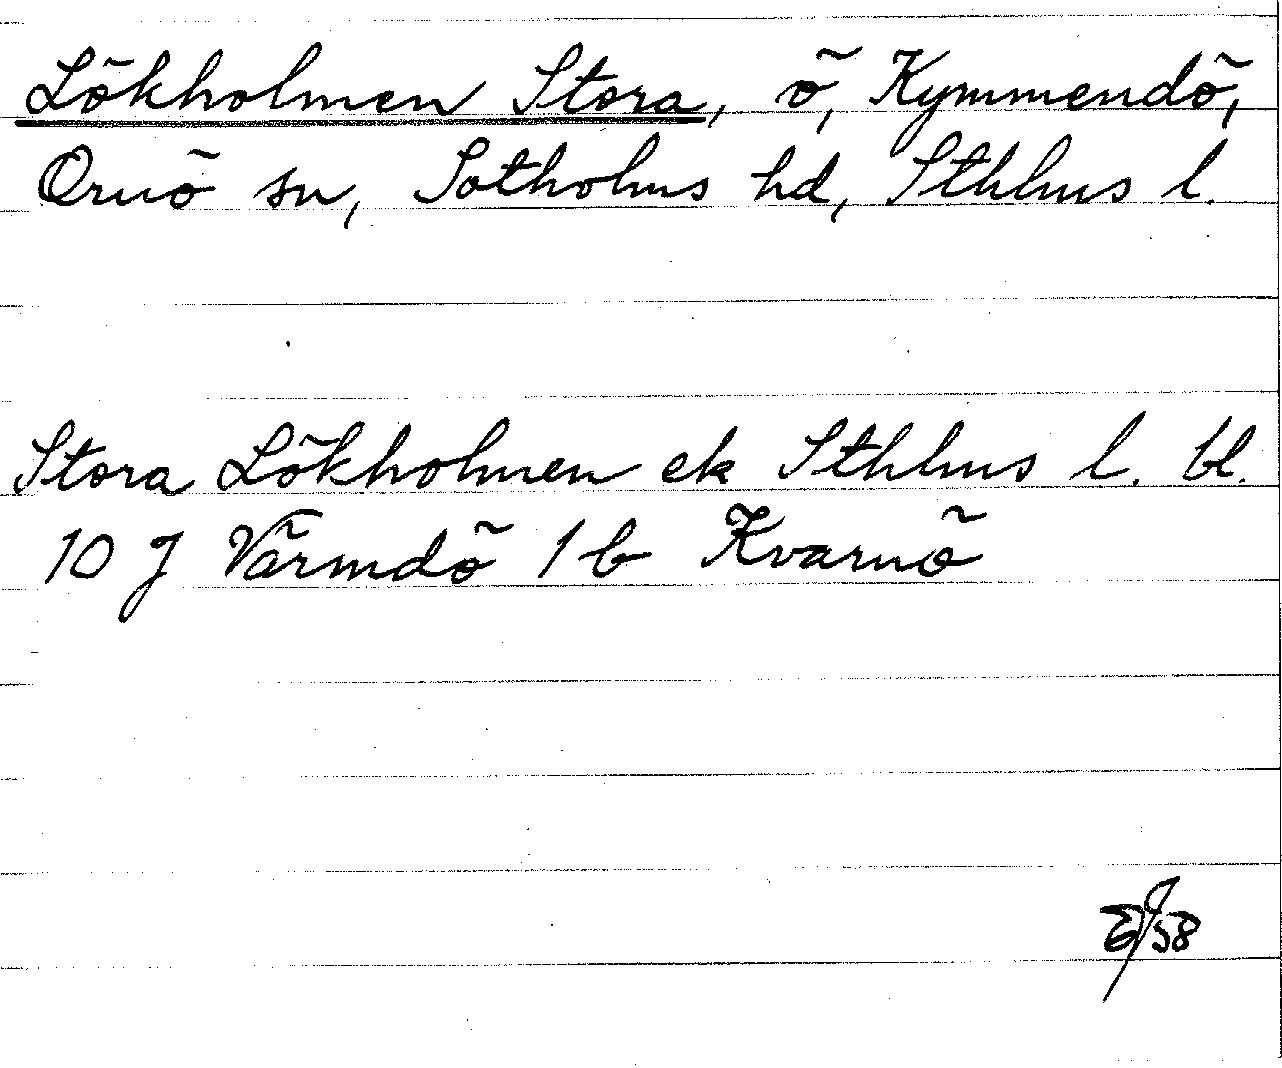 Lökholmen Stora, ö, Kymmendö,
Ornö sn, Sotholms hd, Sthlms l.
Stora Lökholmen ek Sthlms l. bl.
10 J Värmdö 1 b Kvarnö